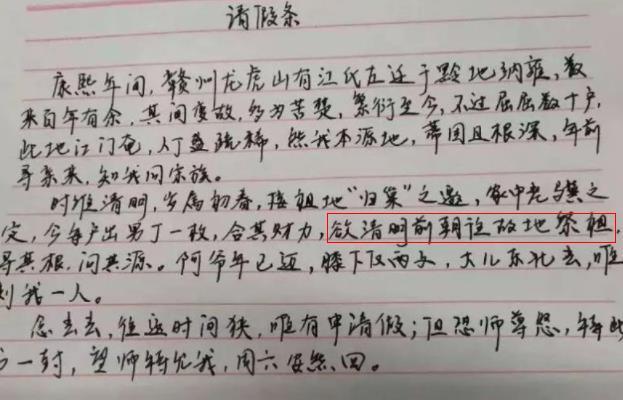 请假条
康熙年间，赣州龙虎山有江氏左迁于黔地纳雍，数
来百年有余，其间变故，多为苦楚，繁衍至今，不过屈屈数十户，
此地江门奄，人丁益疏稀，然我本源地，蒂固且根深，年前
寻亲来，知我同宗族。
时维清明，岁属初春，接祖地“归巢”之邀，家中老
定，今每户出男丁一枚，合其财力，欲清明前朝往故地祭祖，
寻其根，问其源。阿爷年已迈，膝下仅两女，大儿东北去，唯
剩我一人。
念去去，往返时间狭，唯有申请假；但恐师尊怒，特此
一封，望师特允我，周六安然回。